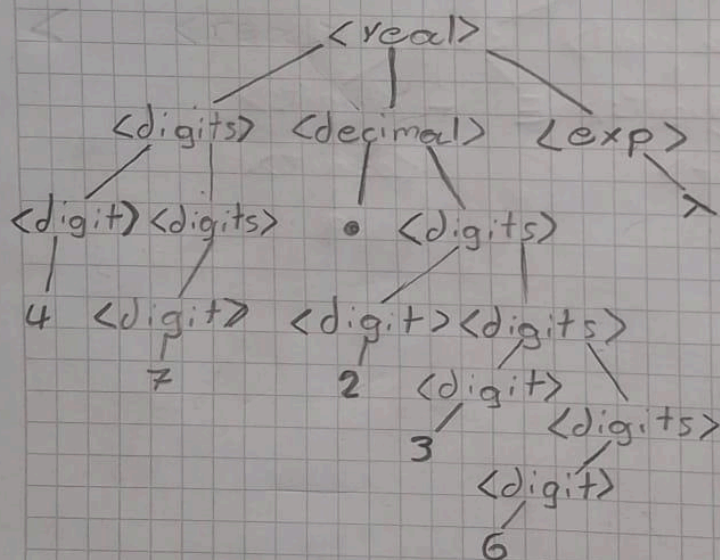 <real>
<digits> <decimal> <exp>
<digit> <digits> • <digits> λ
4 <digit> <digit> <digits>
7 2 <digit>
3 <digits>
<digit>
6